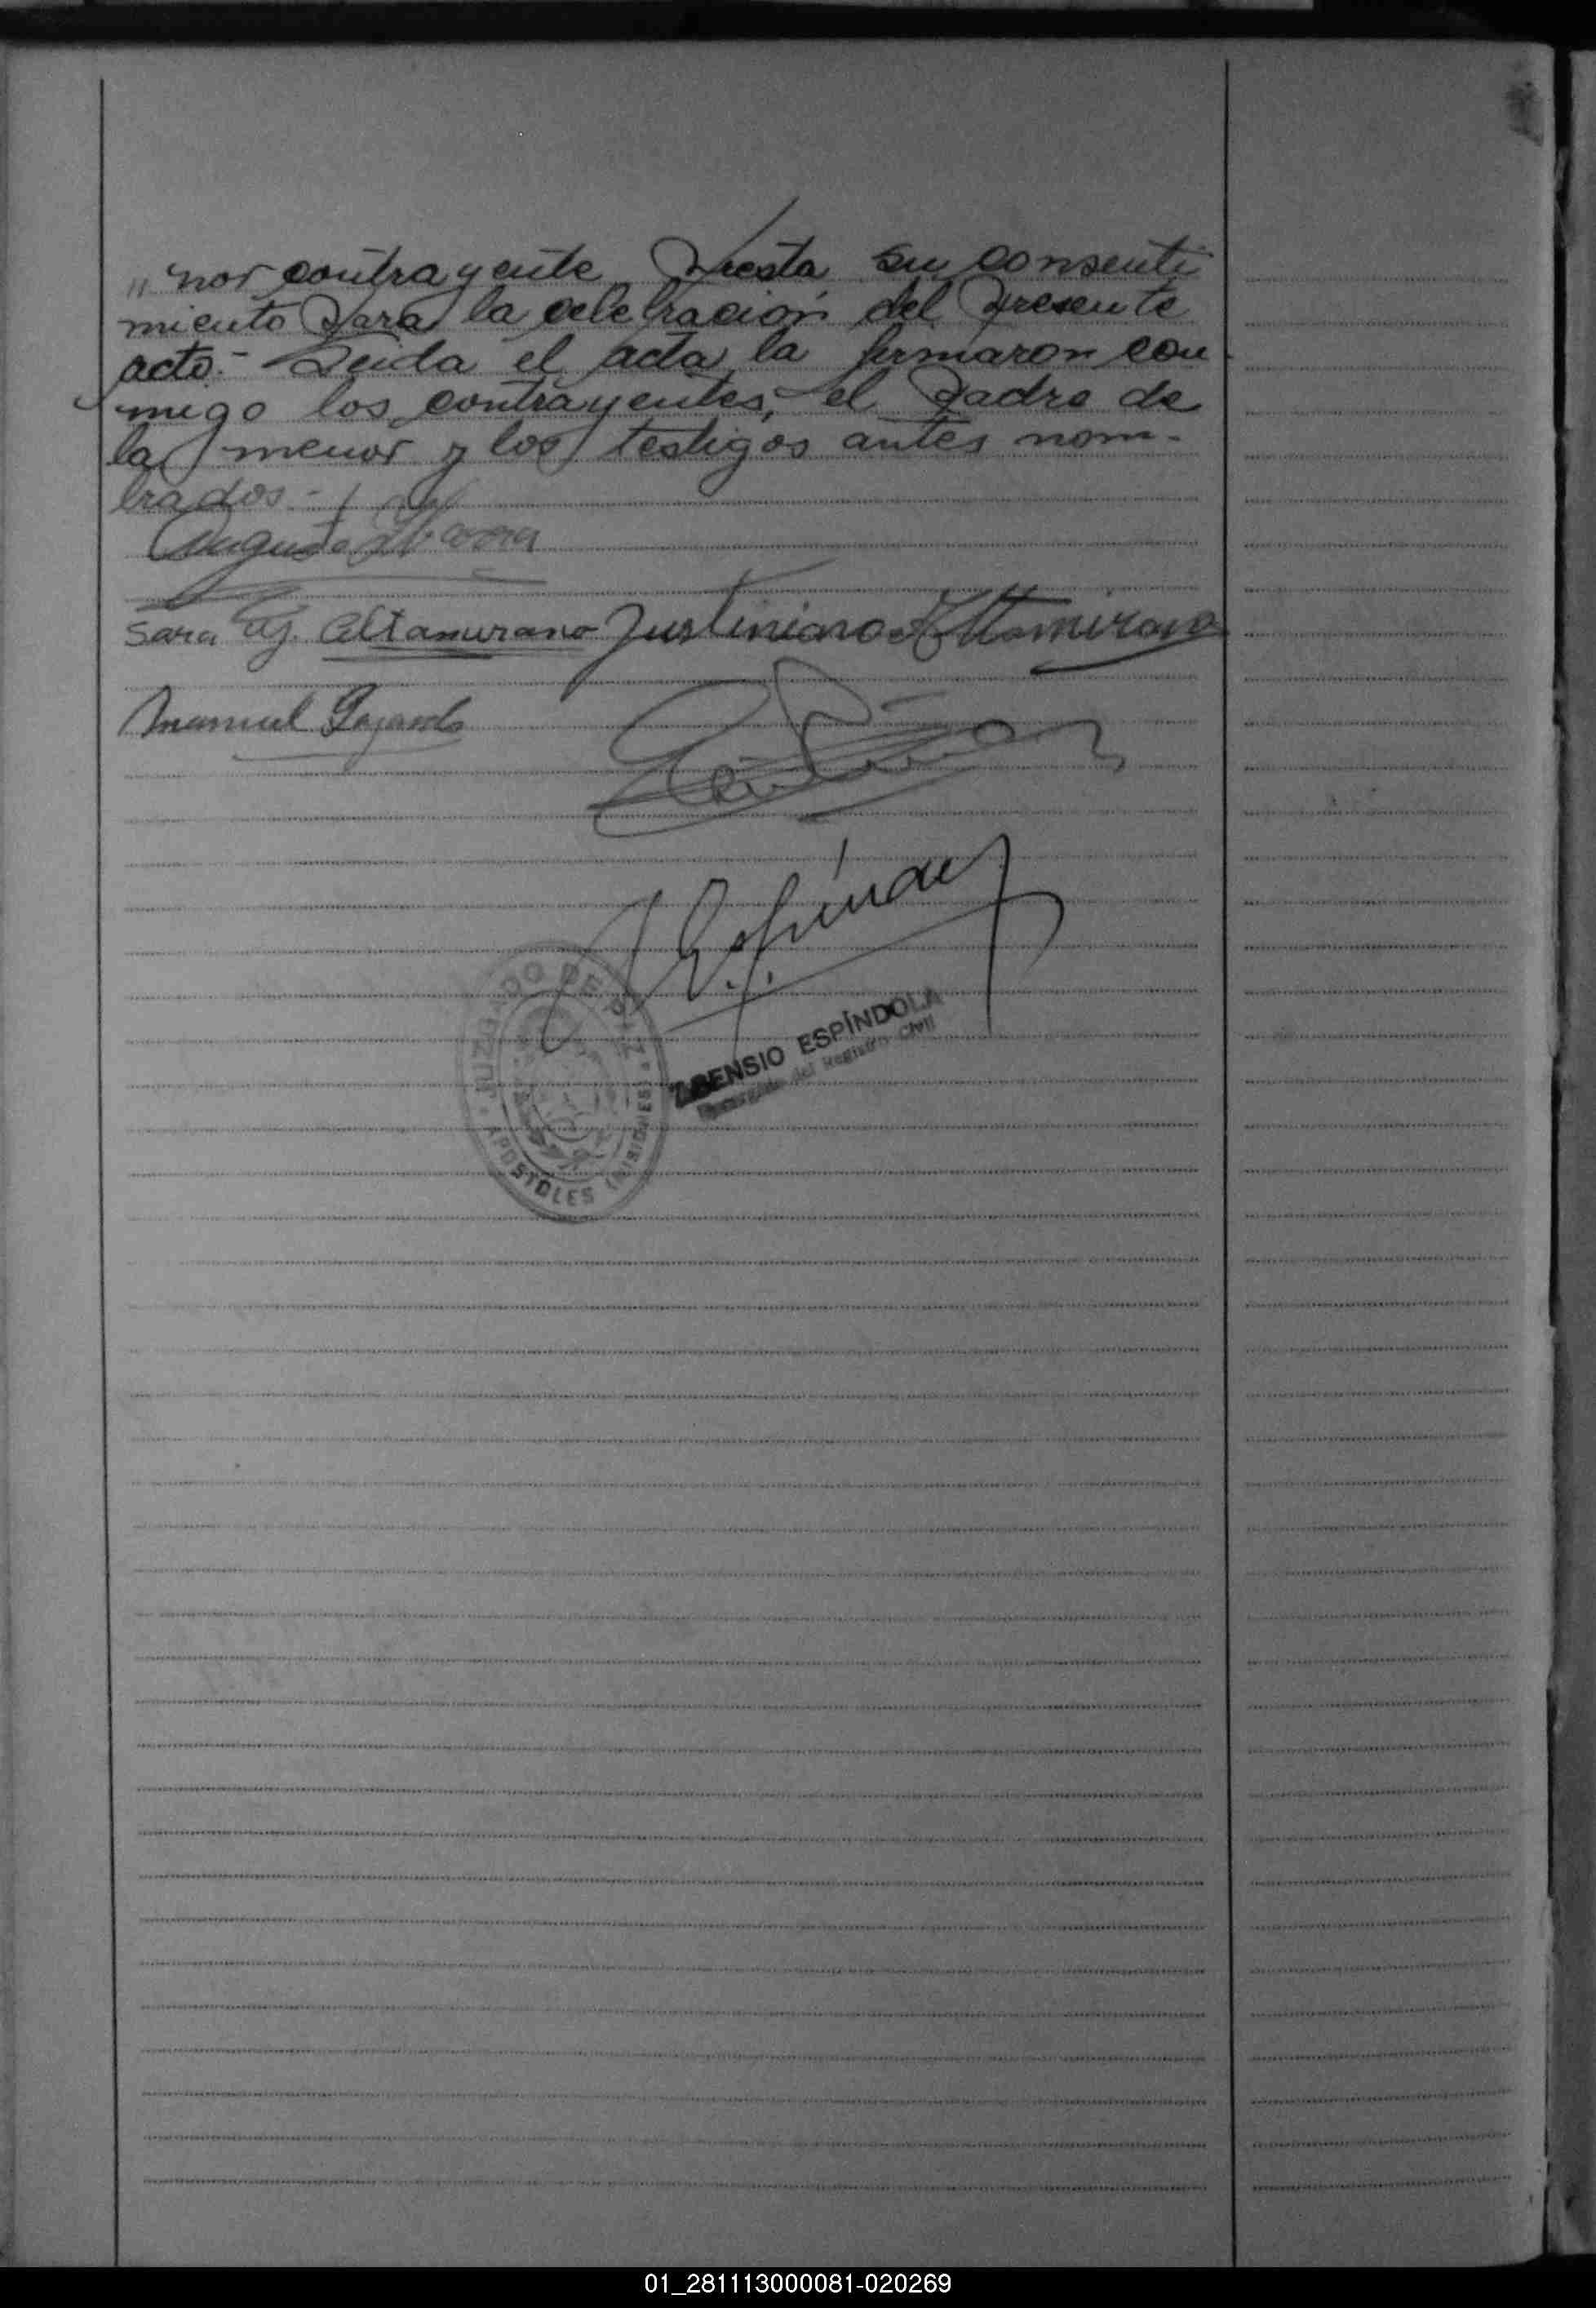 "nor contrayente presta su consenti
miento para la celebración del presente
acto.- Leida el acta la firmaron con-
migo los contrayentes, el padre de
la menor y los testigos antes nom-
brados.-
Sara Altamirano Justiniano Altamirano
Manuel
J. Espíndola
JUZGADO DE PAZ
APOSTOLES (MISIONES)
ESPÍNDOLA
Encargado del Registro Civil
01_281113000081-020269